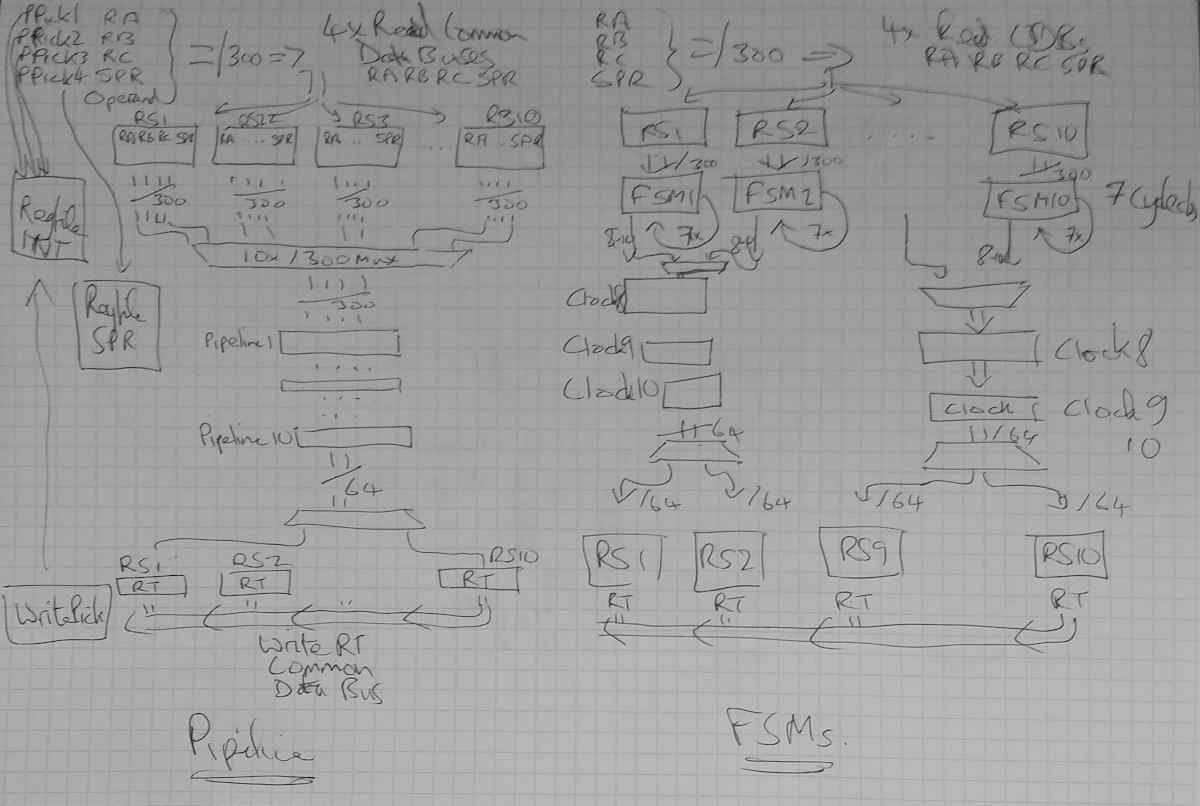 PPick1 RA
PPick2 RB
PPick3 RC
PPick4 SPR
Operand
=/300=>
4x Read Common
Data Buses
RA RB RC SPR
RS1
RS2
RS3
RS10
RA RB RC SPR
RA ... SPR
RA .. SPR
...
RA . SPR
300
300
300
300
Regfile
INT
10x /300 Mux
300
Regfile
SPR
Pipeline 1
Pipeline 10
/64
RS1
RS2
RS10
RT
RT
RT
WritePick
Write RT
Common
Data Bus
Pipeline
RA
RB
RC
SPR
=/300 =>
4x Read CDBs
RA RB RC SPR
RS1
RS2
. . . . .
RS10
/300
/300
300
FSM1
FSM2
FSM10
7 Cycles
7x
7x
7x
8-10
8-10
Clock8
Clock9
Clock10
Clock 8
Clock
Clock 9
10
/64
/64
/64
/64
/64
/64
RS1
RS2
RS9
RS10
RT
RT
RT
RT
FSMs.